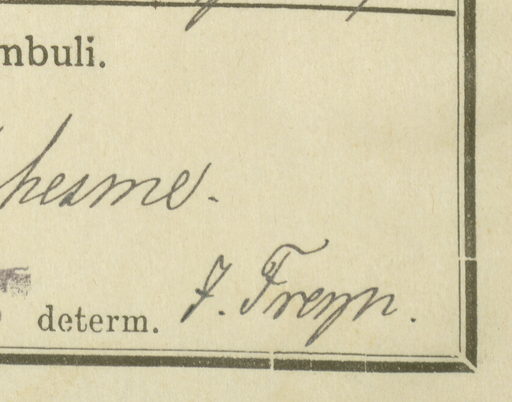 mbuli.
hesme.
determ. J. Freyn.